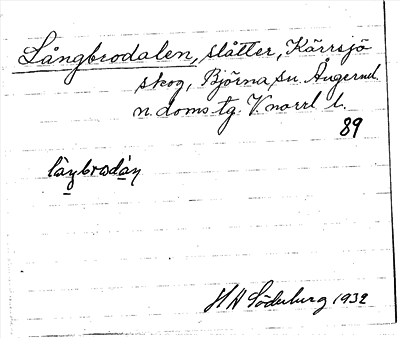 Långbrodalen, slåtter, Kärrsjö
skog, Björna sn. Ångerml.
n. doms tg. Vnorrl l.
89
H A Söderberg 1932